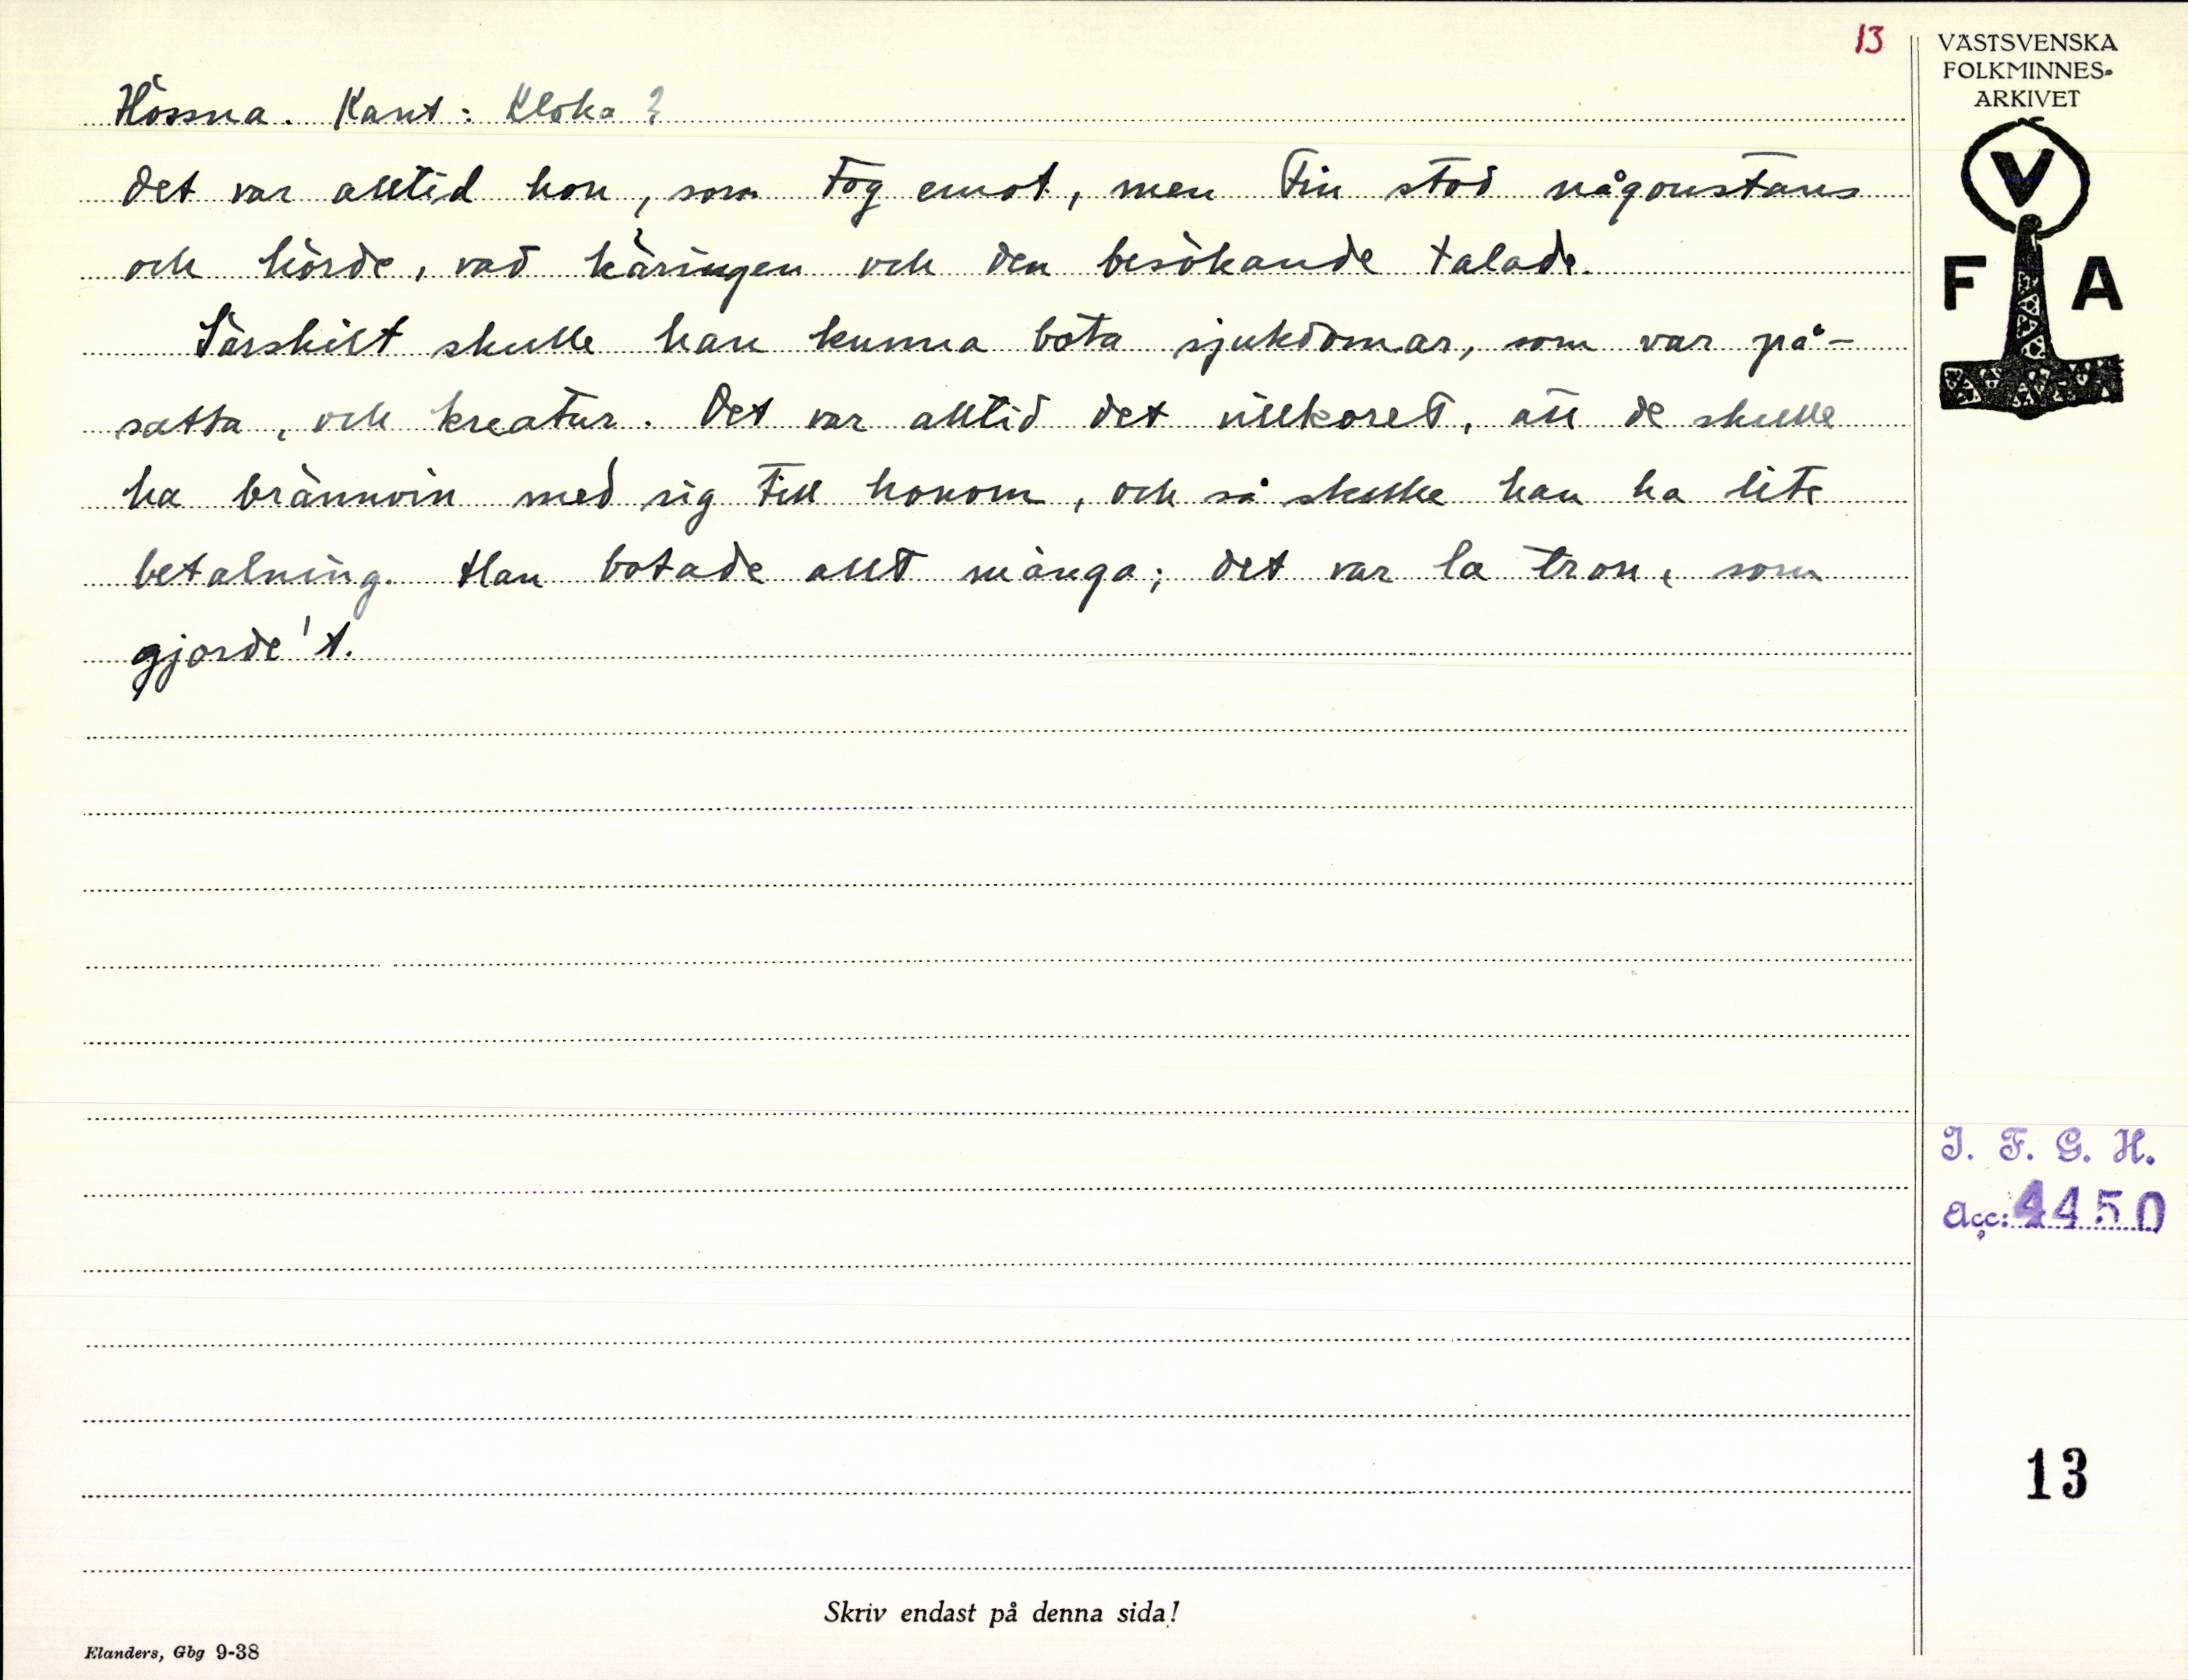 13
VÄSTSVENSKA
FOLKMINNES-
ARKIVET
V
F A
Hössna. Kant: Kloka 2
Det var alltid hon, som tog emot, men Fin stod någonstans
och hörde, vad käringen och den besökande talade.
Särskilt skulle han kunna bota sjukdomar, som var på-
satta, och kreatur. Det var alltid det villkoret, att de skulle
ha brännvin med sig till honom, och så skulle han ha lite
betalning. Han botade allt många; det var la tron, som
gjorde't.
I. F. G. H.
Acc: 4450
13
Skriv endast på denna sida!
Elanders, Gbg 9-38